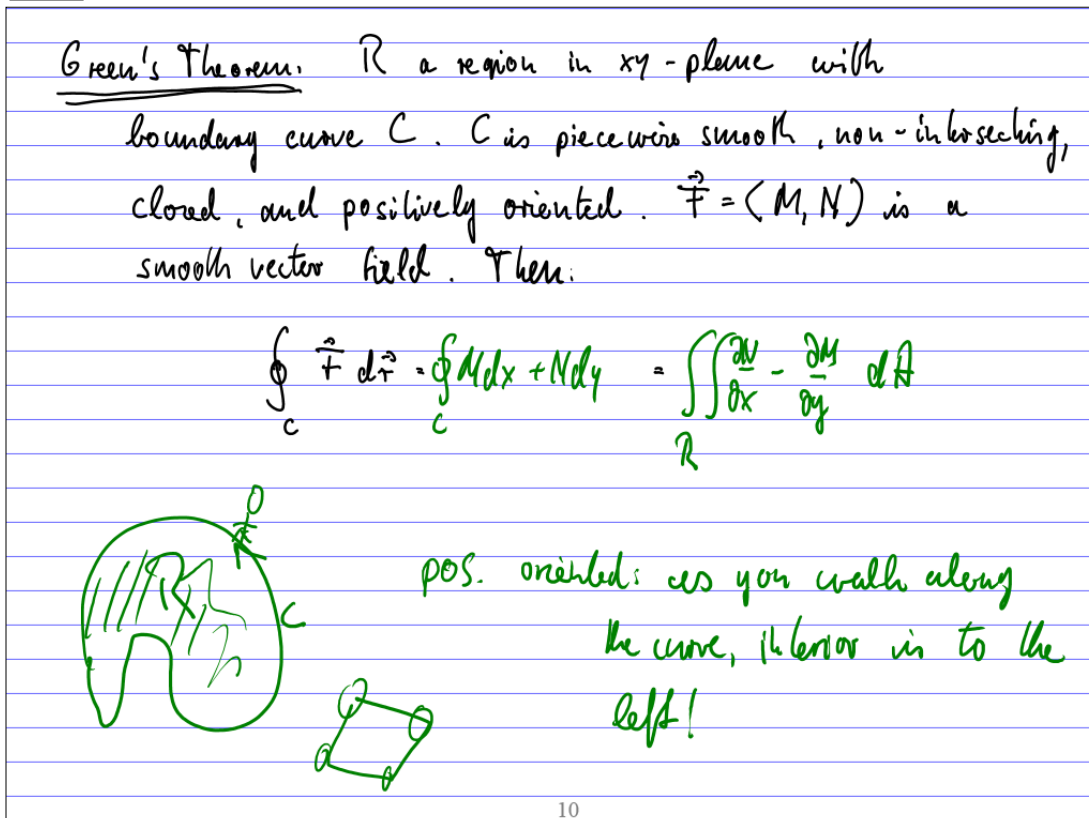 Green's Theorem. R a region in xy-plane with
boundary curve C. C is piecewise smooth, non-intersecting,
closed, and positively oriented. F⃗ = ⟨M, N⟩ is a
smooth vector field. Then:
∮_C F⃗ dr⃗ = ∮_C Mdx + Ndy = ∬_R ∂N/∂x - ∂M/∂y dA
R
C
pos. oriented: as you walk along
the curve, interior is to the
left!
10